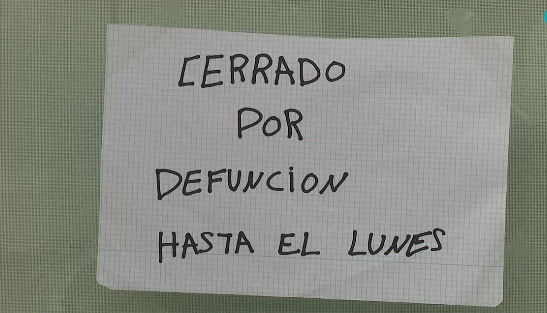 CERRADO
POR
DEFUNCION
HASTA EL LUNES